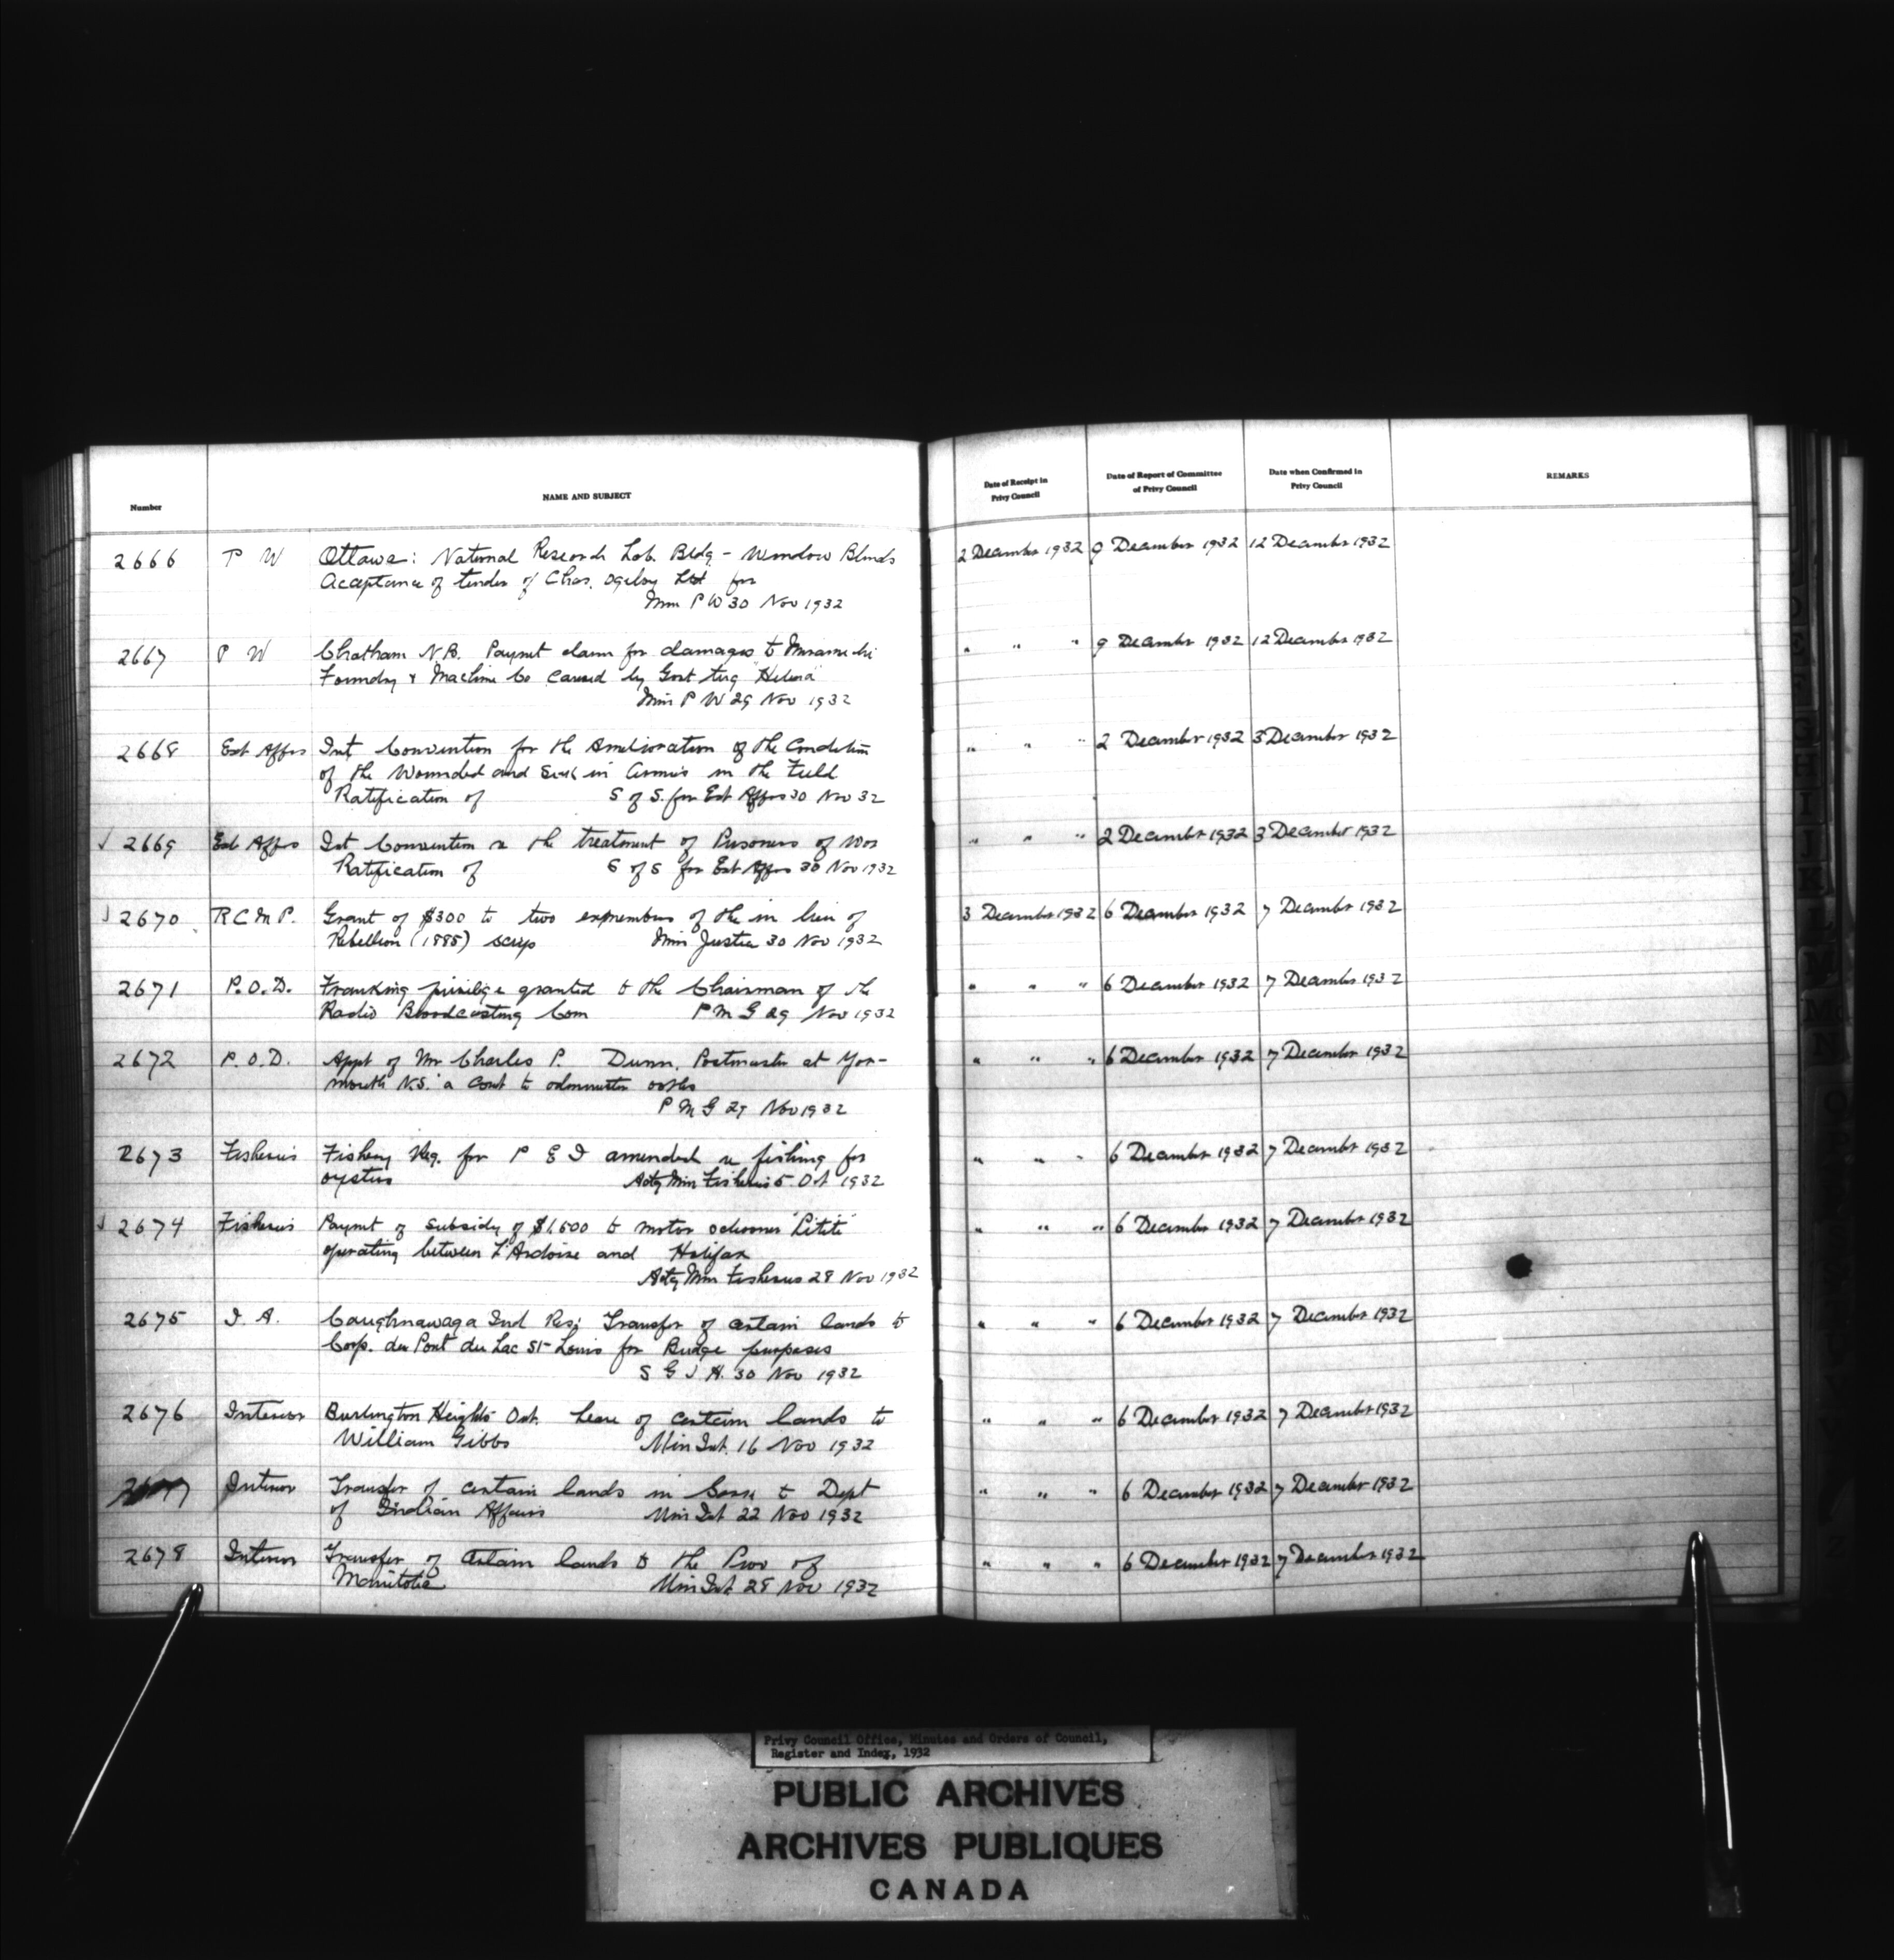 Number
NAME AND SUBJECT
Date of Receipt in
Privy Council
Date of Report of Committee
of Privy Council
Date when Confirmed in
Privy Council
REMARKS
2666 P W Ottawa: National Research Lab. Bldg - Window Blinds 2 December 1932 9 December 1932 12 December 1932
Acceptance of tender of Chas. Ogilvy Ltd for
Min P W 30 Nov 1932
2667 P W Chatham N.B. Paymt claim for damages to Miramichi " " " 9 December 1932 12 December 1932
Foundry & Machine Co caused by Govt tug "Helena"
Min P W 29 Nov 1932
2668 Ext Affrs Int Convention for the Amelioration of the Condition " " " 2 December 1932 3 December 1932
of the Wounded and Sick in Armies in the Field
Ratification of S of S. for Ext Affrs 30 Nov 32
√ 2669 Ext Affrs Int Convention re the treatment of Prisoners of War " " " 2 December 1932 3 December 1932
Ratification of S of S for Ext Affrs 30 Nov 1932
√ 2670 R C M P. Grant of $300 to two exmembers of the in lieu of 3 December 1932 6 December 1932 7 December 1932
Rebellion (1885) scrip Min Justice 30 Nov 1932
2671 P.O.D. Franking privilige granted to the Chairman of the " " " 6 December 1932 7 December 1932
Radio Broadcasting Com P M G 29 Nov 1932
2672 P.O.D. Appt of Mr Charles P. Dunn, Postmaster at Yar- " " " 6 December 1932 7 December 1932
mouth N.S. a Comt to administer oaths
P M G 29 Nov 1932
2673 Fisheries Fishery Reg. for P E I amended re fishing for " " " 6 December 1932 7 December 1932
oysters Actg Min Fisheries 5 Oct 1932
√ 2674 Fisheries Paymt of subsidy of $1,500 to motor schooner "Letite" " " " 6 December 1932 7 December 1932
operating between L'Ardoise and Halifax
Actg Min Fisheries 28 Nov 1932
2675 I. A. Caughnawaga Ind Res; Transfer of certain lands to " " " 6 December 1932 7 December 1932
Corp. du Pont du Lac St-Louis for Bridge purposes
S G I A. 30 Nov 1932
2676 Interior Burlington Heights Ont. Lease of certain lands to " " " 6 December 1932 7 December 1932
William Gibbs Min Int. 16 Nov 1932
2677 Interior Transfer of certain lands in Sask to Dept " " " 6 December 1932 7 December 1932
of Indian Affairs Min Int 22 Nov 1932
2678 Interior Transfer of certain lands to the Prov of " " " 6 December 1932 7 December 1932
Manitoba Min Int 28 Nov 1932
Privy Council Office, Minutes and Orders of Council,
Register and Index, 1932
PUBLIC ARCHIVES
ARCHIVES PUBLIQUES
CANADA